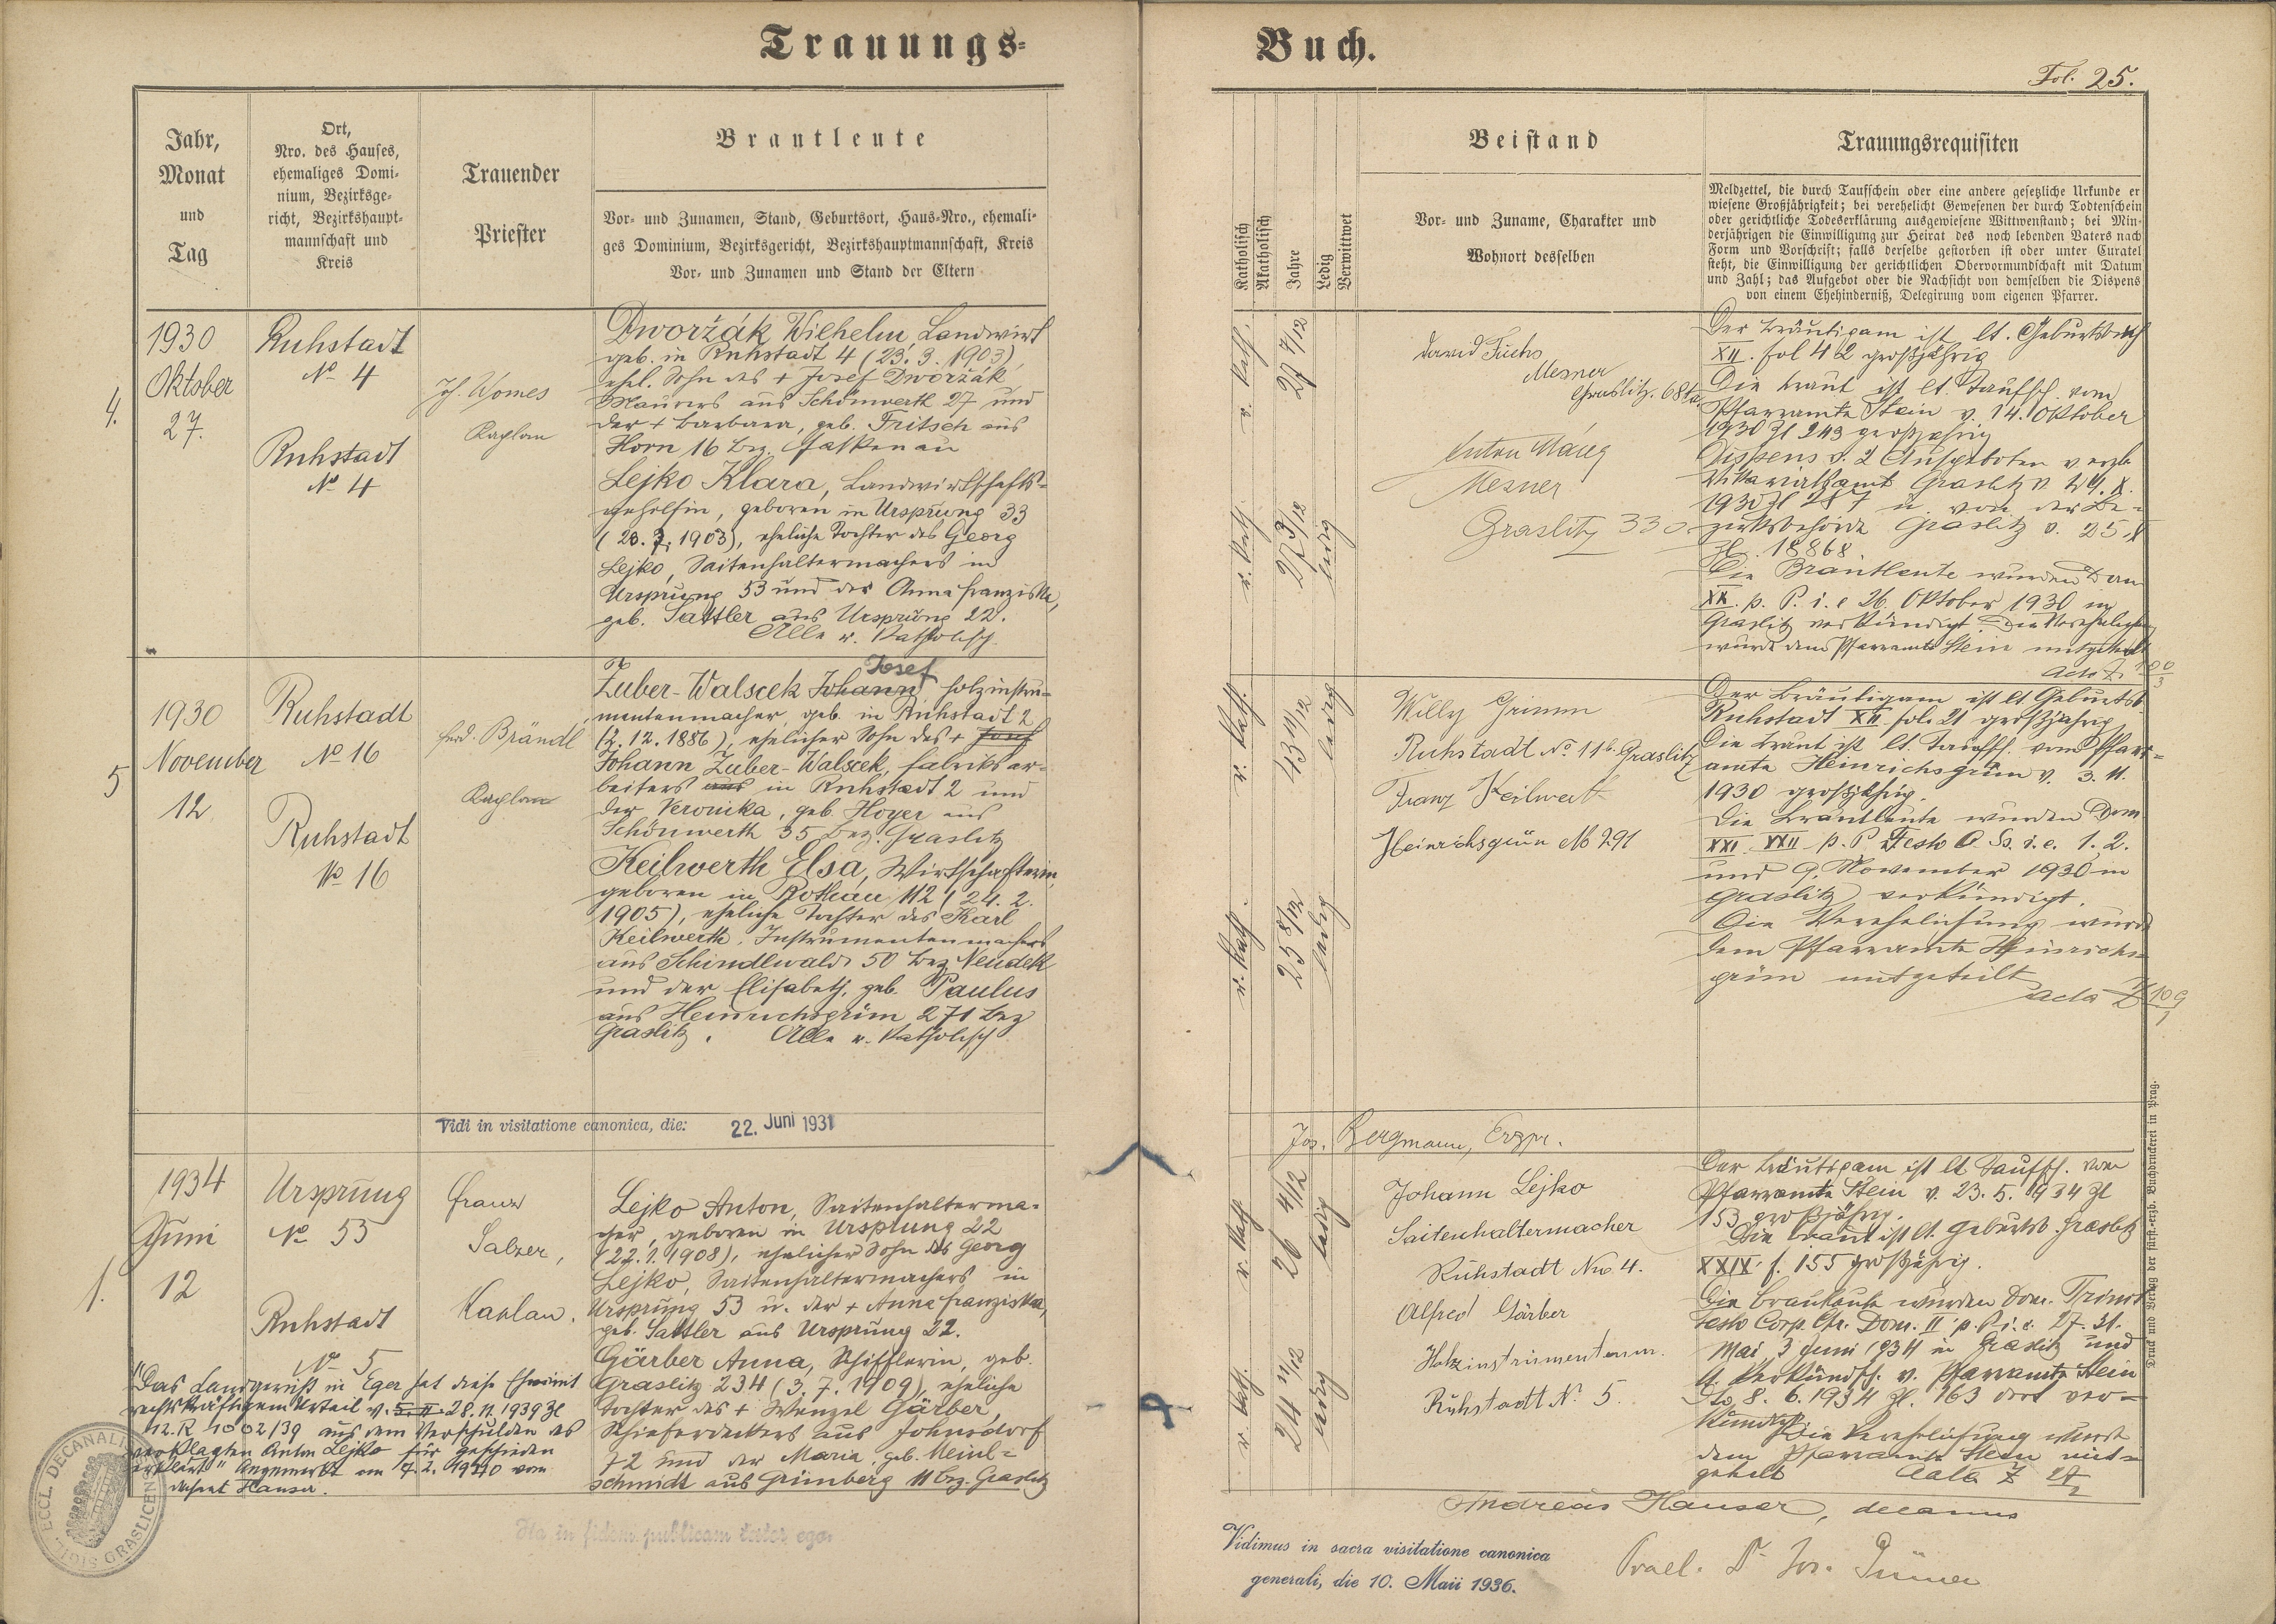 Trauungs-
Buch.
Fol. 25.
Jahr,
Monat
und
Tag
Ort,
Nro. des Hauses,
ehemaliges Domi-
nium, Bezirksge-
richt, Bezirkshaupt-
mannschaft und
Kreis
Trauender
Priester
Brautleute
Vor- und Zunamen, Stand, Geburtsort, Haus-Nro., ehemali-
ges Dominium, Bezirksgericht, Bezirkshauptmannschaft, Kreis
Vor- und Zunamen und Stand der Eltern
Katholisch
Akatholisch
Jahre
Ledig
Verwittwet
Beistand
Vor- und Zuname, Charakter und
Wohnort desselben
Trauungsrequisiten
Meldzettel, die durch Taufschein oder eine andere gesetzliche Urkunde er
wiesene Großjährigkeit; bei verehelicht Gewesenen der durch Todtenschein
oder gerichtliche Todeserklärung ausgewiesene Wittwenstand; bei Min-
derjährigen die Einwilligung zur Heirat des noch lebenden Vaters nach
Form und Vorschrift; falls derselbe gestorben ist oder unter Curatel
steht, die Einwilligung der gerichtlichen Obervormundschaft mit Datum
und Zahl; das Aufgebot oder die Nachsicht von demselben die Dispens
von einem Ehehinderniß, Delegirung vom eigenen Pfarrer.
4.
1930
Oktober
27.
Ruhstadt
No 4
Ruhstadt
No 4
Jos. Womes
Kaplan
Dworžák Wilhelm, Landwirt
geb. in Ruhstadt 4 (23. 3. 1903),
ehel. Sohn des + Josef Dworžák,
Maurers aus Schönwerth 27 und
der + Barbara, geb. Fritsch aus
Horn 16 bez. Falkenau
Lejko Klara, Landwirtschafts-
gehilfin, geboren in Ursprung 33
(20. 7. 1903), eheliche Tochter des Georg
Lejko, Saitenhaltermachers in
Ursprung 53 und der Anna Franziska,
geb. Sattler aus Ursprung 22.
Alle r. katholisch
r. kath.
27 7/12
r. kath.
27 3/12
ledig
David Fuchs
Mesner
Graslitz.
Anton
Mesner
Graslitz 330
Der Bräutigam ist lt. Geburtsbuch
XII. fol 42 großjährig
Die Braut ist lt. Taufsch. vom
Pfarramte Stein v. 14. Oktober
1930 Zl 243 großjährig
Dispens v. 2 Aufgeboten v erzb
Vikariatsamt Graslitz v. 24. X.
1930 Zl 287 u. von der Be-
zirksbehörde Graslitz v. 25. X
Zl. 18868.
Die Brautleute wurden Dom
XX. p. P. i. e 26. Oktober 1930 in
Graslitz verkündigt. Die Verehelichung
wurde dem Pfarramte Stein mitgeteilt
Acta Z.
5
1930
November
12
Ruhstadt
No 16
Ruhstadt
No 16
Ferd. Brändl
Kaplan
Josef
Zuber-Walscek Johann, Holzinstru-
mentenmacher, geb. in Ruhstadt 2
(2. 12. 1886), ehelicher Sohn des + Josef
Johann Zuber-Walscek, Fabriksar-
beiters aus in Ruhstadt 2 und
der Veronika, geb. Hoyer aus
Schönwerth 35 bez. Graslitz
Keilwerth Elsa, Wirtschafterin,
geboren in Rothau 112 (24. 2.
1905), eheliche Tochter des Karl
Keilwerth, Instrumentenmachers
aus Schindlwald 50 bez Neudek
und der Elisabeth, geb. Paulus
aus Heinrichsgrün 271 bez
Graslitz. Alle r. katholisch
r. kath.
43 11/12
ledig
r. kath.
25 8/12
ledig
Willy Grimm
Ruhstadt No 116. Graslitz
Franz Keilwerth
Heinrichsgrün No 291
Der Bräutigam ist lt Geburtsb.
Ruhstadt XII fol. 21 großjährig
Die Braut ist lt. Taufsch. vom Pfarr-
amte Heinrichsgrün v. 3. 11.
1930 großjährig.
Die Brautleute wurden Dom
XXI. XXII p. P Festo O. Ss. i. e. 1. 2.
und 9. November 1930 in
Graslitz verkündigt.
Die Verehelichung wurde
dem Pfarramte Heinrichs-
grün mitgeteilt
Acta Z 109
Vidi in visitatione canonica, die: 22. Juni 1931
Jos. Bergmann, Erzpr.
1.
1934
Juni
12
Ursprung
No 53
Ruhstadt
No 5
Franz
Salzer,
Kaplan.
Lejko Anton, Saitenhalterma-
cher, geboren in Ursprung 22
(22. 1. 1908), ehelicher Sohn des Georg
Lejko, Saitenhaltermachers in
Ursprung 53 u. der + Anna Franziska,
geb. Sattler aus Ursprung 22.
Gärber Anna, Schifflerin, geb.
Graslitz 234 (3. 7. 1909), eheliche
Tochter des + Wenzel Gärber,
Schieferdeckers aus Johnsdorf
72 und der Maria, geb. Meinl-
schmidt aus Grünberg 11 bez. Graslitz
r. kath
26 4/12
ledig
r. kath.
24 11/12
ledig
Johann Lejko
Saitenhaltermacher
Ruhstadt Nro 4.
Alfred Gärber
Holzinstrumentenm.
Ruhstadt No 5.
Der Bräutigam ist lt Taufsch. vom
Pfarramte Stein v. 23. 5. 1934 Zl
153 großjährig.
Die Braut ist lt. Geburtsb. Graslitz
XXIX. f. 155 großjährig.
Die Brautleute wurden Dom. Trinit
Festo Corp. Chr. Dom. II p. P. i. e. 27. 31.
Mai, 3 Juni 1934 in Graslitz und
lt. Verkündsch. v. Pfarramte Stein
dto 8. 6. 1934 Zl. 163 dort ver-
kündigt.
Die Verehelichung wurde
dem Pfarramte Stein mit-
geteilt Acta Z 27/2
"Das Landgericht in Eger hat diese Ehe mit
rechtskräftigem Urteil v. 5. 11. 28. 11. 1939 Zl
12. R 1002/39 aus dem Verschulden des
verklagten Anton Lejko für geschieden
erklärt" Angemerkt am 7. 2. 1940 vom
Dechant Hauser.
ECCL. DECANALIS
GRASLICENSIS
Ita in fidem publicam testor ego:
Andreas Hauser, decanus
Vidimus in sacra visitatione canonica
generali, die 10. Maii 1936.
Prael. Dr Jos.
Druck und Verlag der fürst.-erzb. Buchdruckerei in Prag.